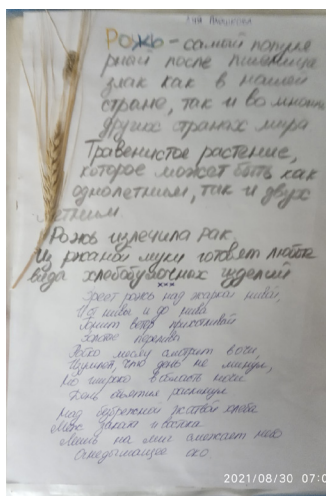 Рожь - самой популя
рной после пшеницы
злак как в нашей
стране, так и во многих
других странах мира
Травенистое растение,
которое может быть как
однолетним, так и двух
летним.
Рожь излечила рак.
Из ржаной муки готовят любые
вида хлебобулочных изделий
***
Зреет рожь над жаркой нивой,
И от нивы и до нивы
Гонит ветер прихотливый
Золотые переливы
Робко месяц смотрит в очи,
Изумлён, что день не минул,
Но широко в область ночи
День объятия раскинул
Над безбрежной жатвой хлеба
Меж заката и востока
Лишь на миг смежает небо
Огнедышащее око
2021/08/30 07:0